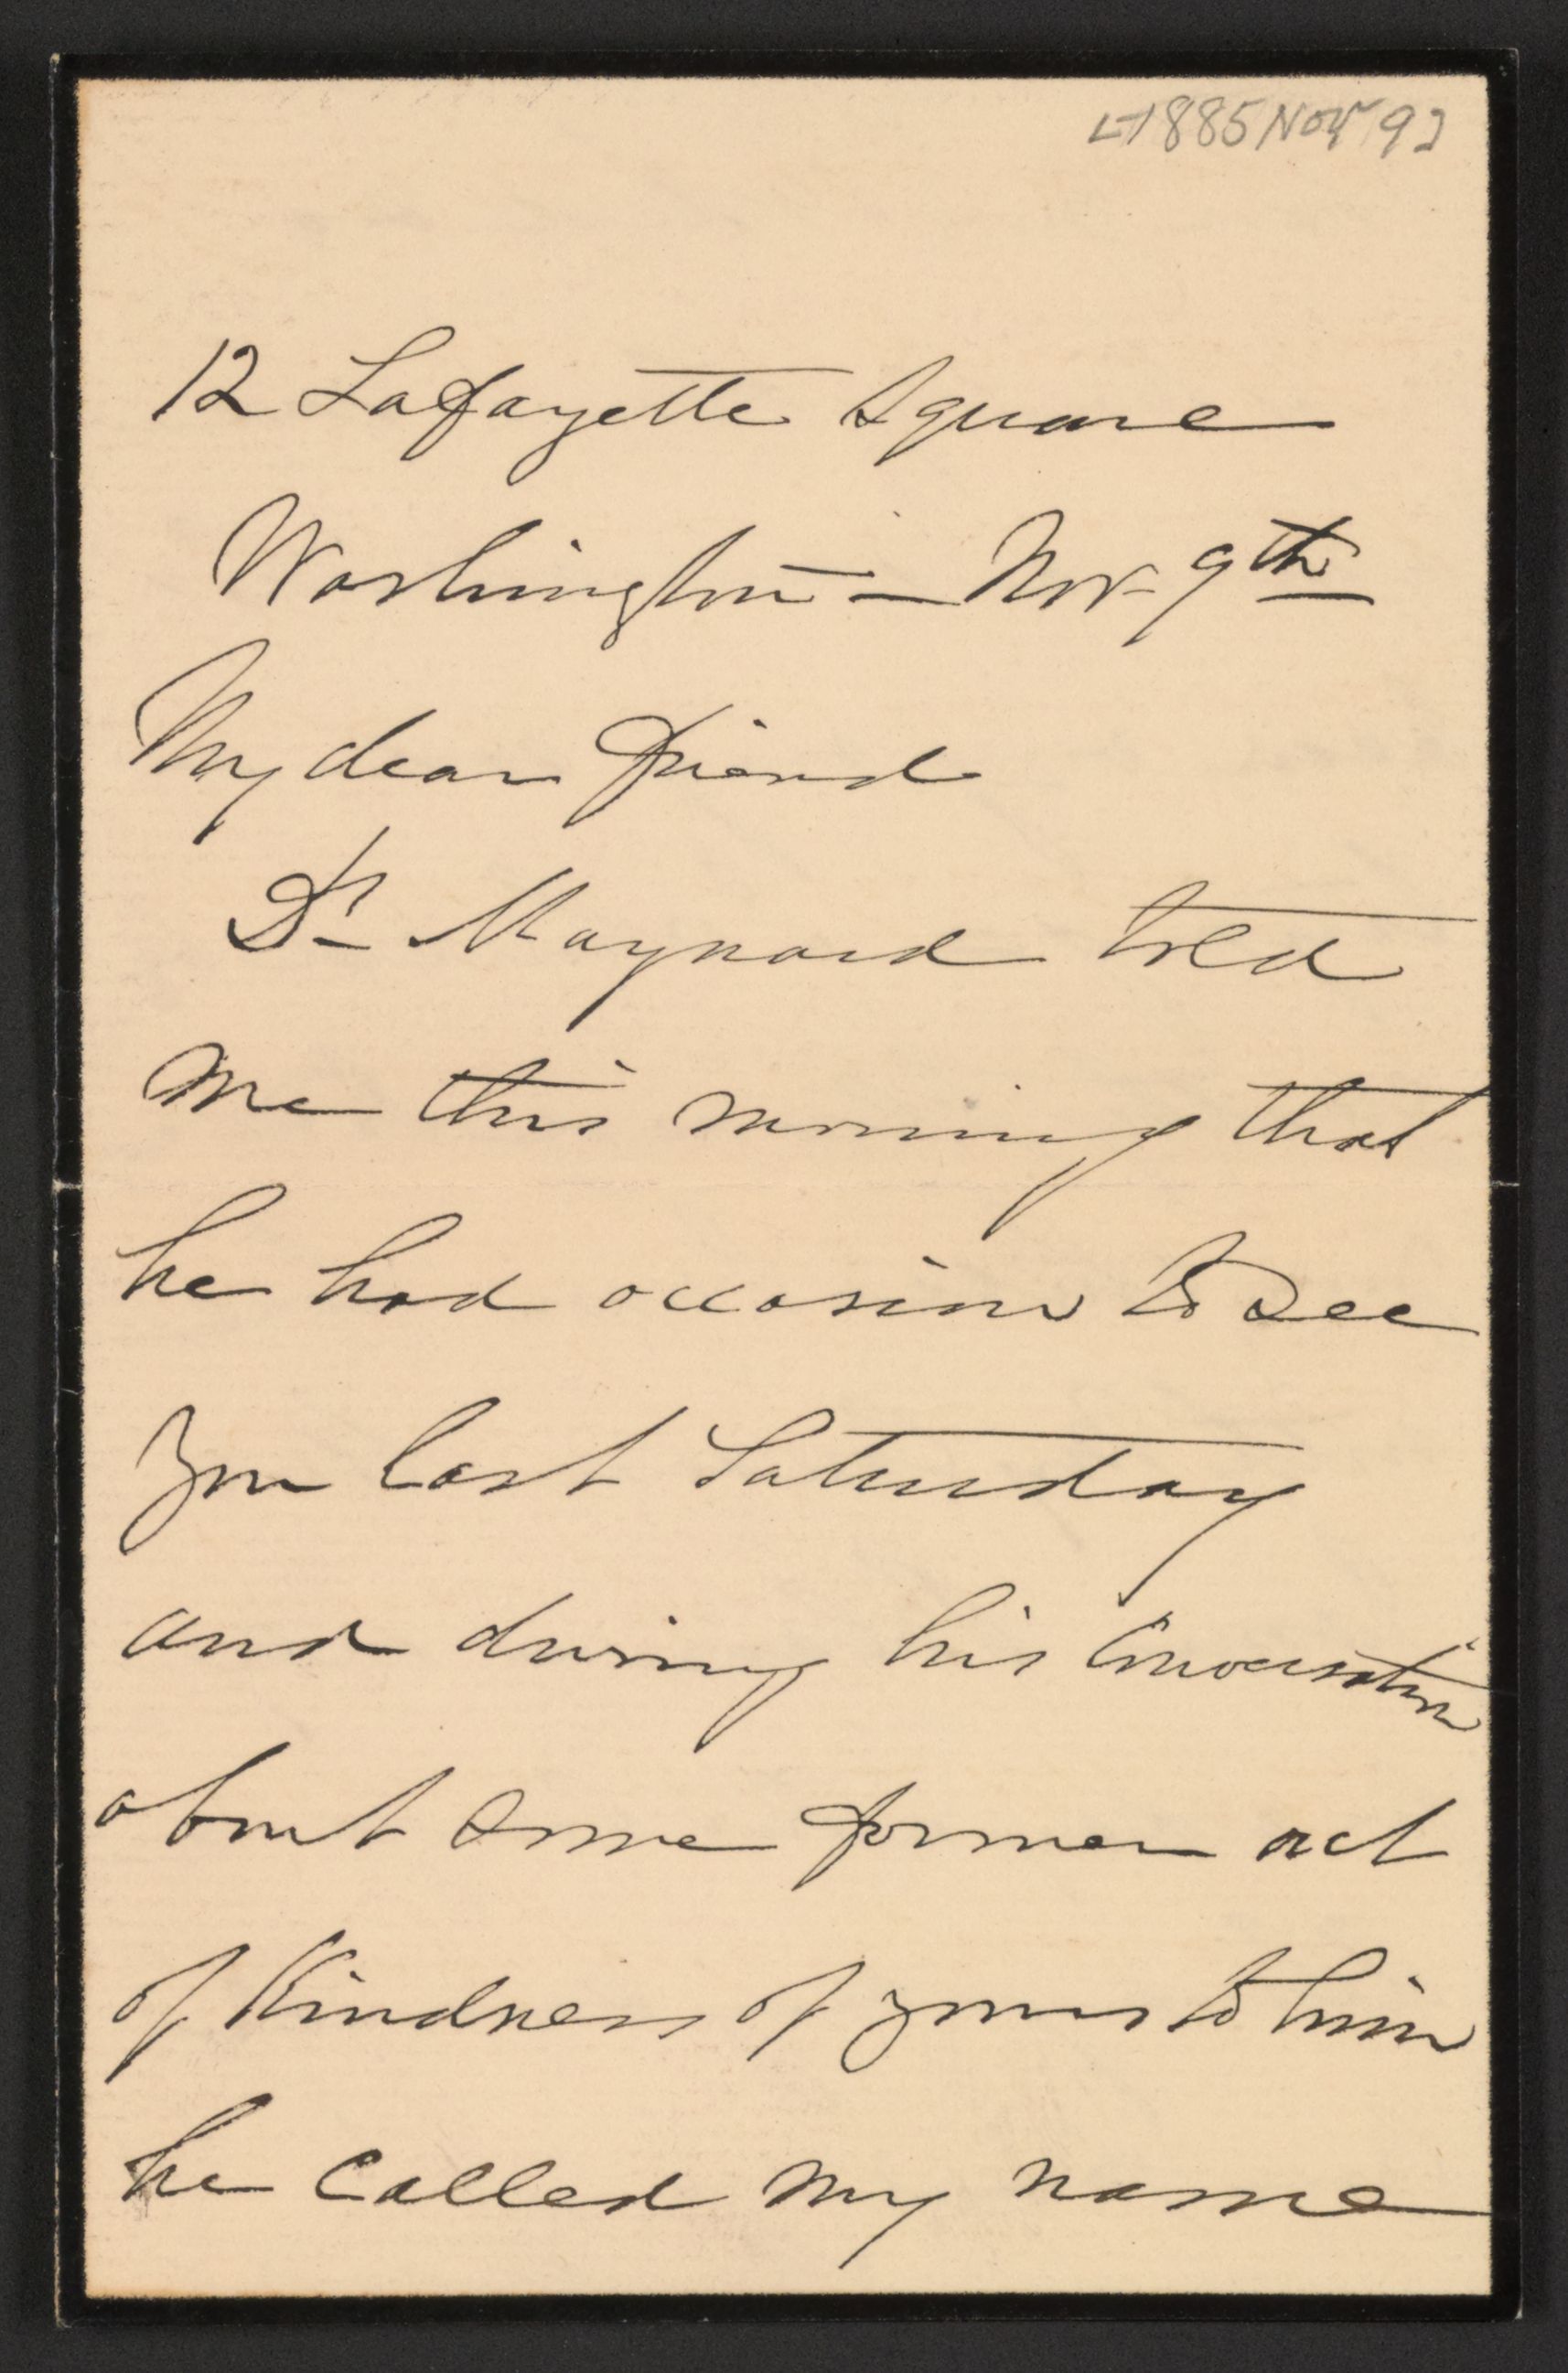 [1885 Nov 9]
12 Lafayette Square
Washington — Nov. 9th
My dear friend
Dr Maynard told
me this morning that
he had occasion to see
you last Saturday
and during his conversation
about some former act
of kindness of yours to him
he called my name